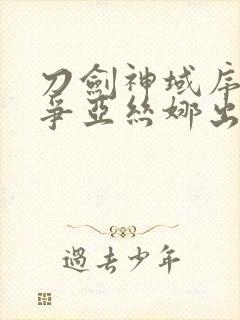 刀劍神域序
爭亞絲娜出
過去少年